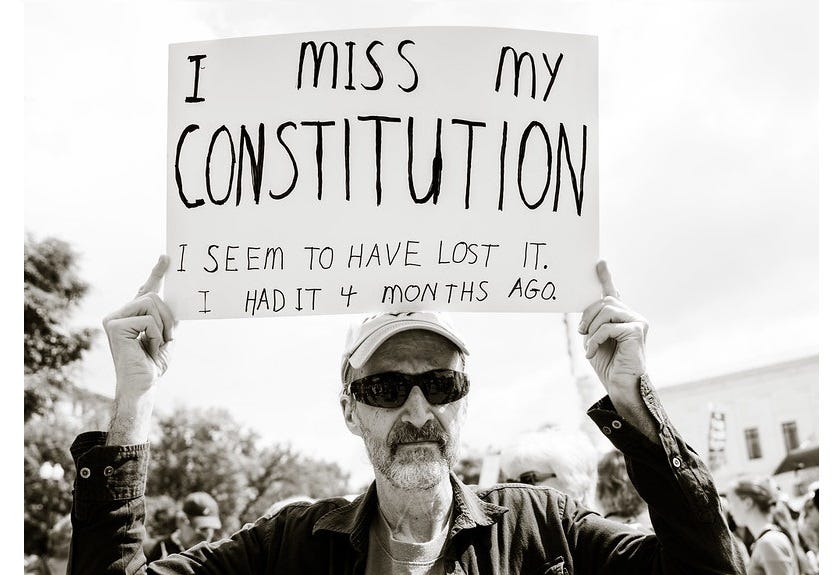 I MISS MY
CONSTITUTION
I SEEM TO HAVE LOST IT.
I HAD IT 4 MONTHS AGO.